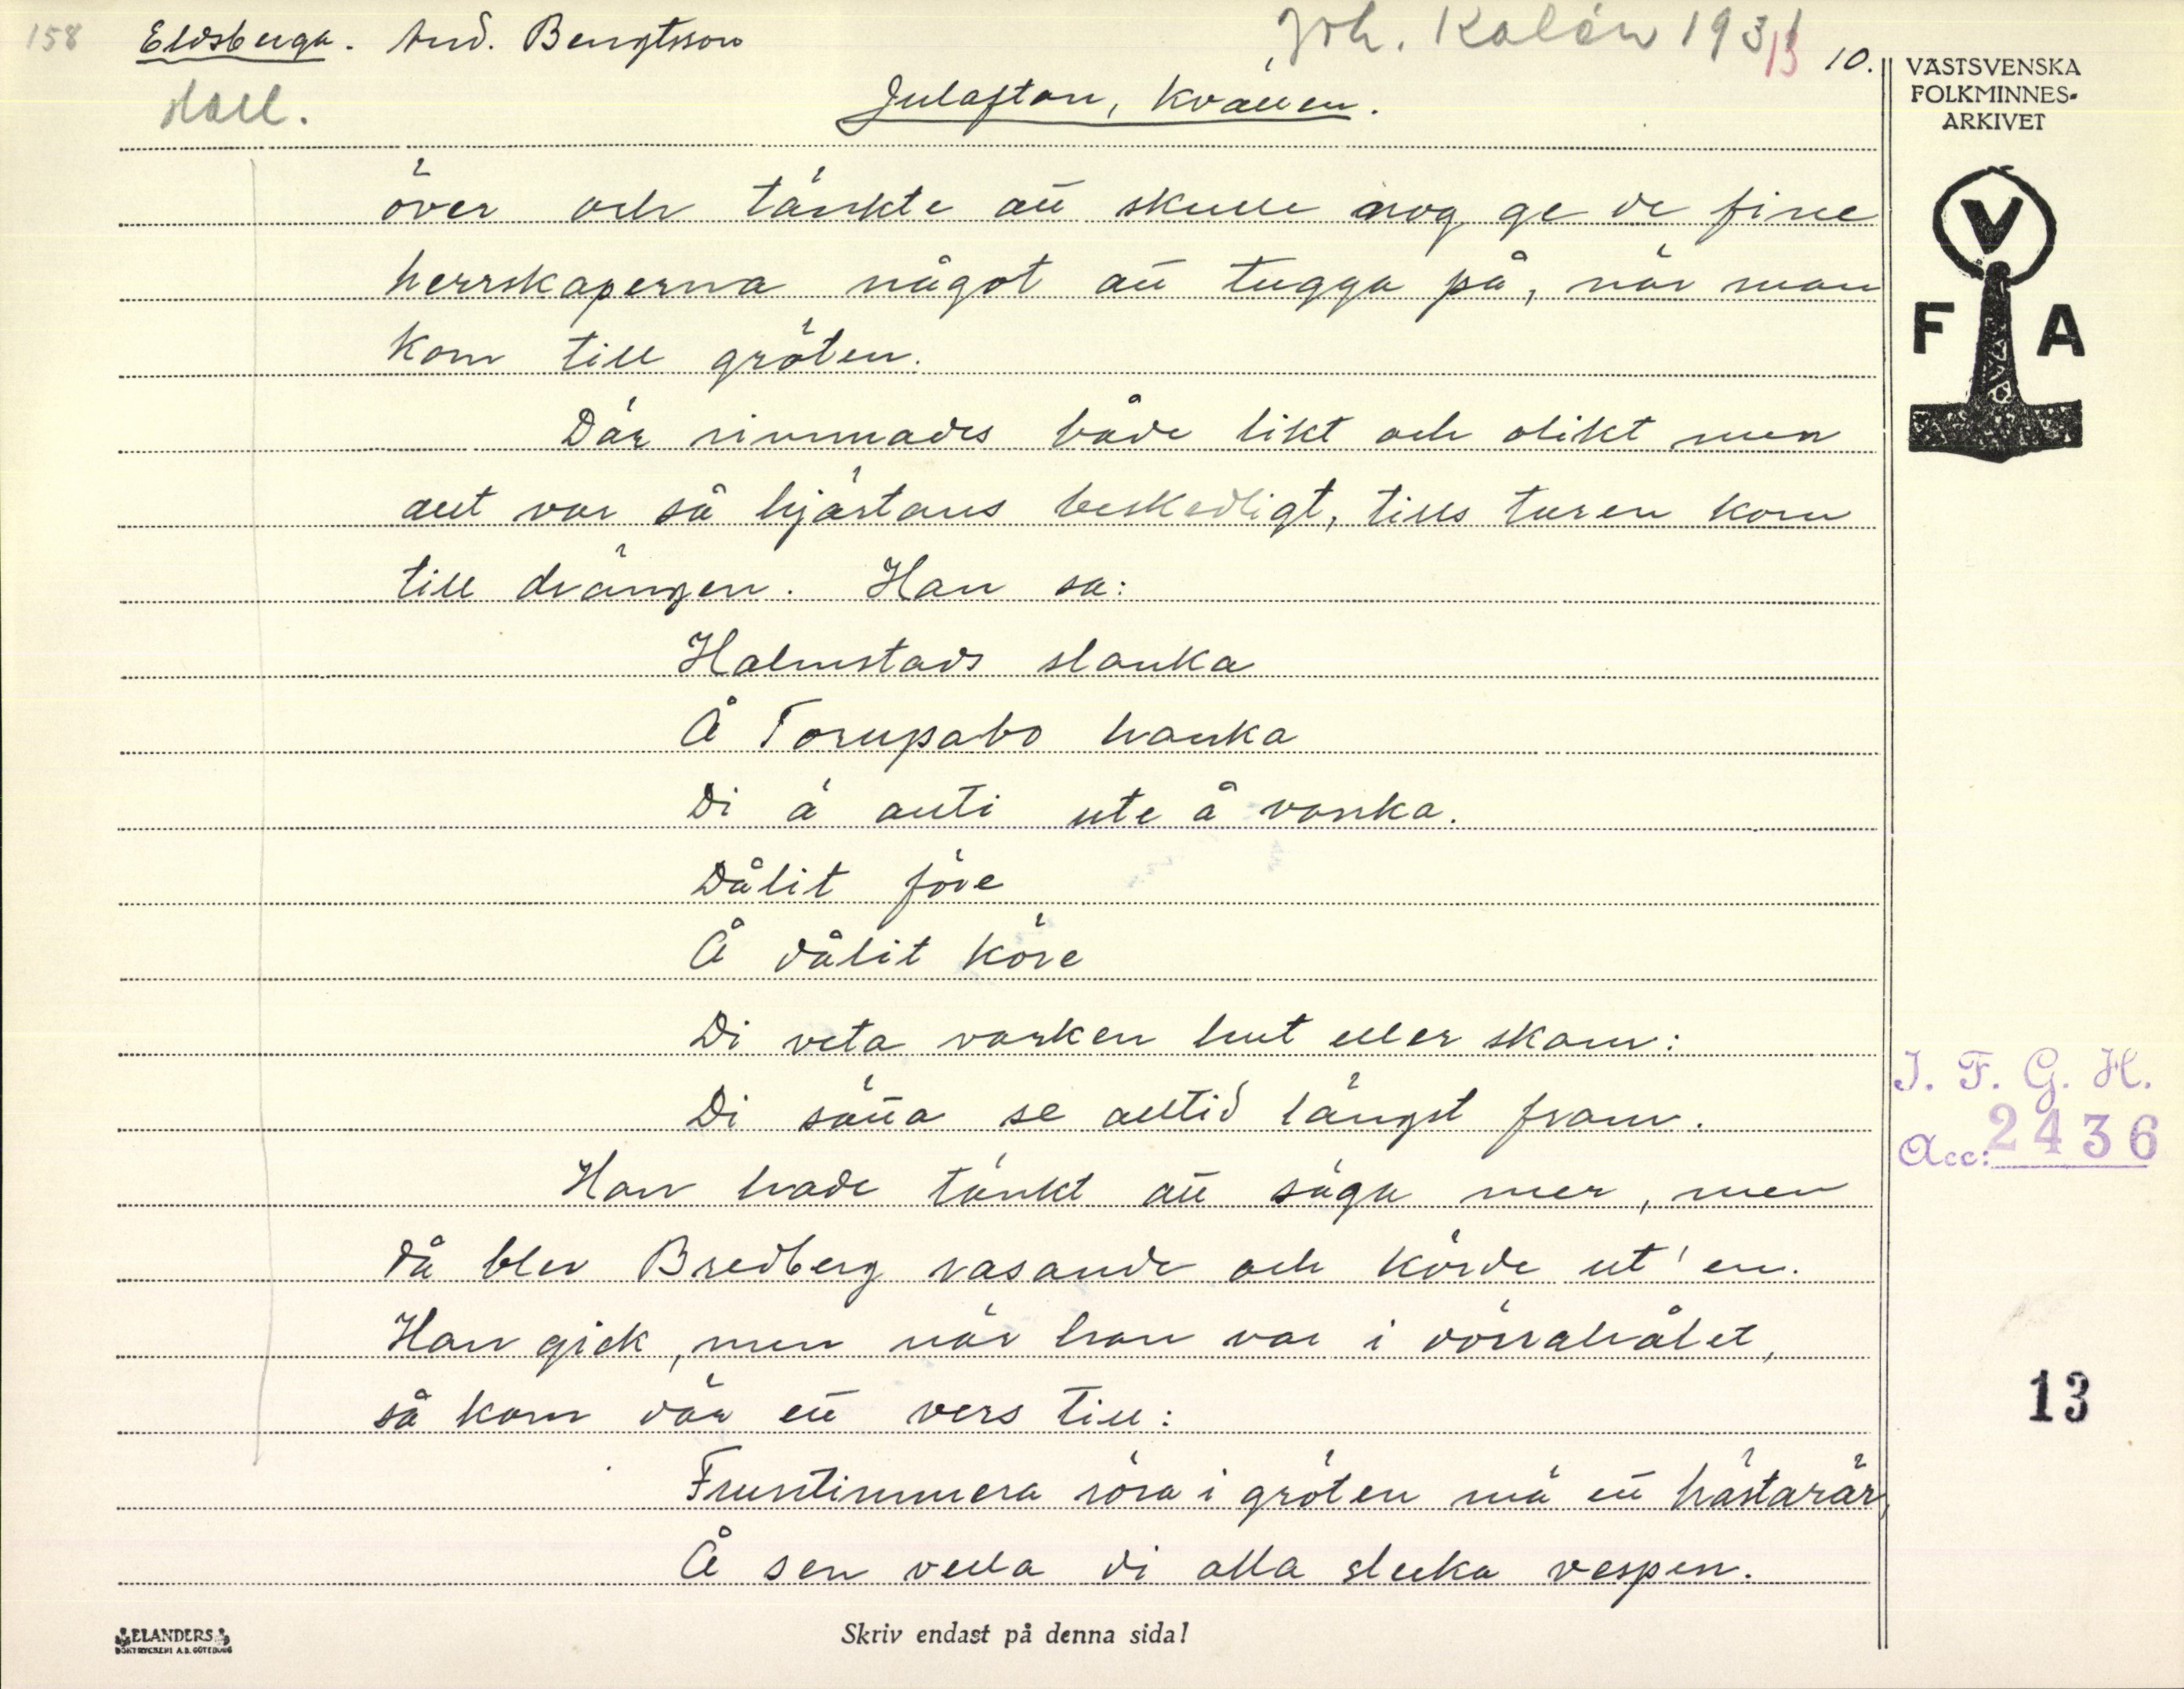 158 Eldsberga. And. Bengtsson Joh. Kalén 1931 13 10.
Hall.
Julafton, kvällen.
VÄSTSVENSKA
FOLKMINNES-
ARKIVET
V
F A
över och tänkte att skulle nog ge de fine
herrskaperna något att tugga på, när man
kom till gröten.
Där rimmades både likt och olikt men
allt var så hjärtans beskedligt, tills turen kom
till drängen. Han sa:
Halmstads slanka
Å Torupabo hanka
Di ä allti ute å vanka.
Dålit före
Å dålit köre
Di veta varken hut eller skam:
Di sätta se alltid längst fram.
Han hade tänkt att säga mer, men
då blev Bredberg rasande och körde ut'en.
Han gick, men när han var i dörrahålet,
så kom där ett vers till:
Fruntimmera röra i gröten mä ett hästarär,
Å sen vella di alla sleka vespen.
I. F. G. H.
Acc: 2436
13
ELANDERS
BOKTRYCKERI A.B. GÖTEBORG
Skriv endast på denna sida!